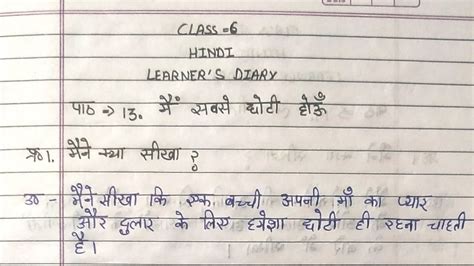 CLASS -6
HINDI
LEARNER'S DIARY
पाठ => 13. मैं सबसे छोटी होऊँ
प्र०1. मैंने क्या सीखा ?
उ० - मैंने सीखा कि एक बच्ची अपनी माँ का प्यार
और दुलार के लिए हमेशा छोटी ही रहना चाहती
है।